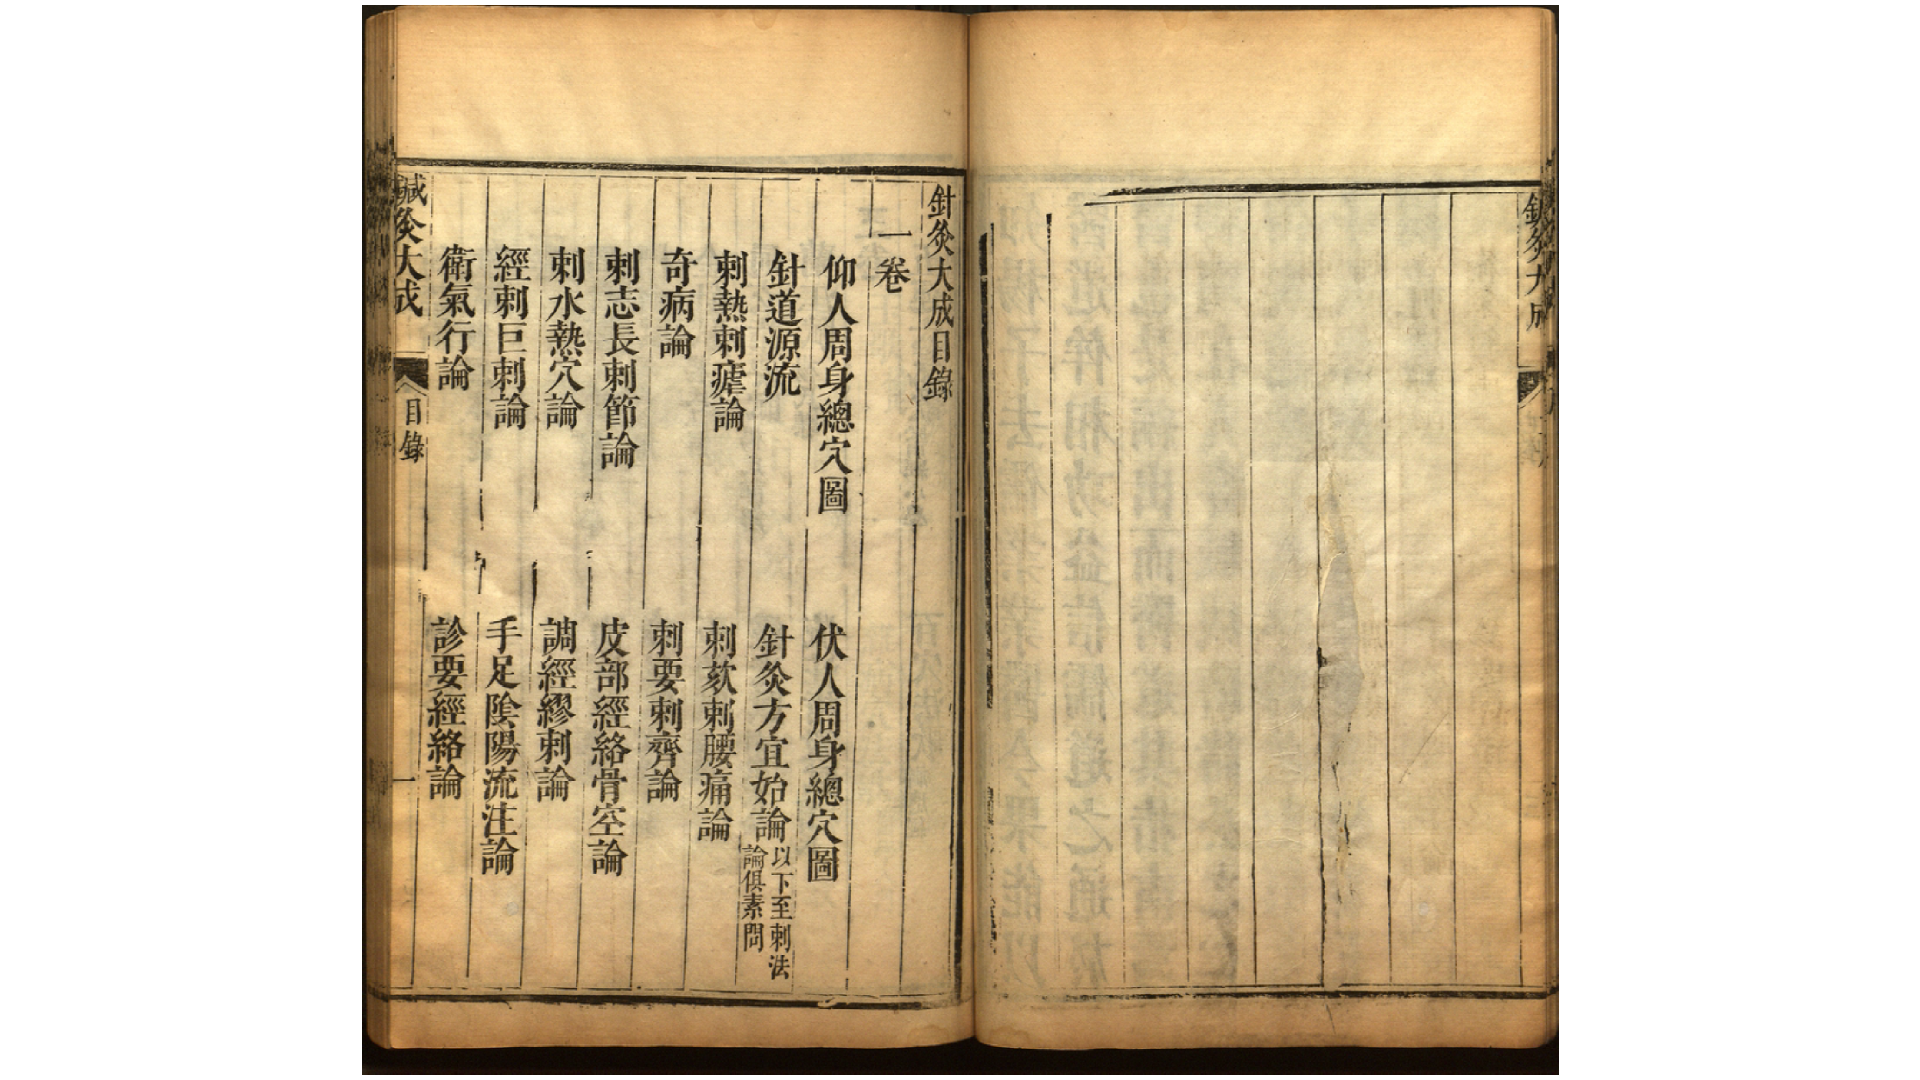 鍼灸大成
針灸大成目錄
一卷
仰人周身總穴圖　伏人周身總穴圖
針道源流　針灸方宜始論　以下至刺法
論俱素問
刺熱刺瘧論　刺欬刺腰痛論
奇病論　刺要刺齊論
刺志長刺節論　皮部經絡骨空論
刺水熱穴論　調經繆刺論
經刺巨刺論　手足陰陽流注論
衛氣行論　診要經絡論
鍼灸大成　目錄　一